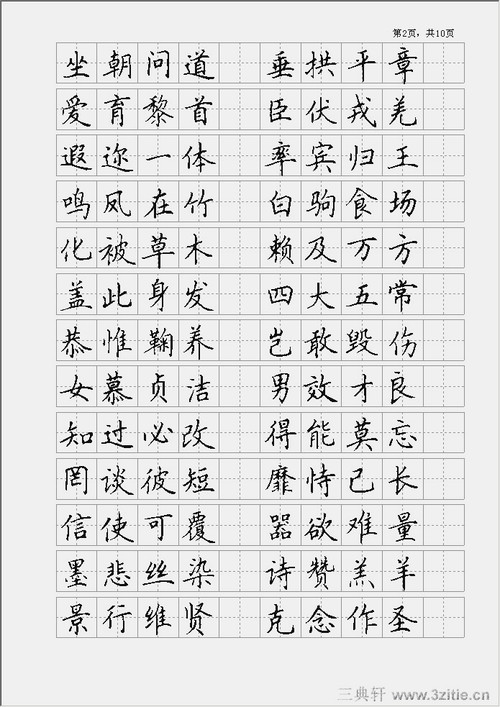 第2页，共10页
坐朝问道 垂拱平章
爱育黎首 臣伏戎羌
遐迩一体 率宾归王
鸣凤在竹 白驹食场
化被草木 赖及万方
盖此身发 四大五常
恭惟鞠养 岂敢毁伤
女慕贞洁 男效才良
知过必改 得能莫忘
罔谈彼短 靡恃己长
信使可覆 器欲难量
墨悲丝染 诗赞羔羊
景行维贤 克念作圣
三典轩 www.3zitie.cn